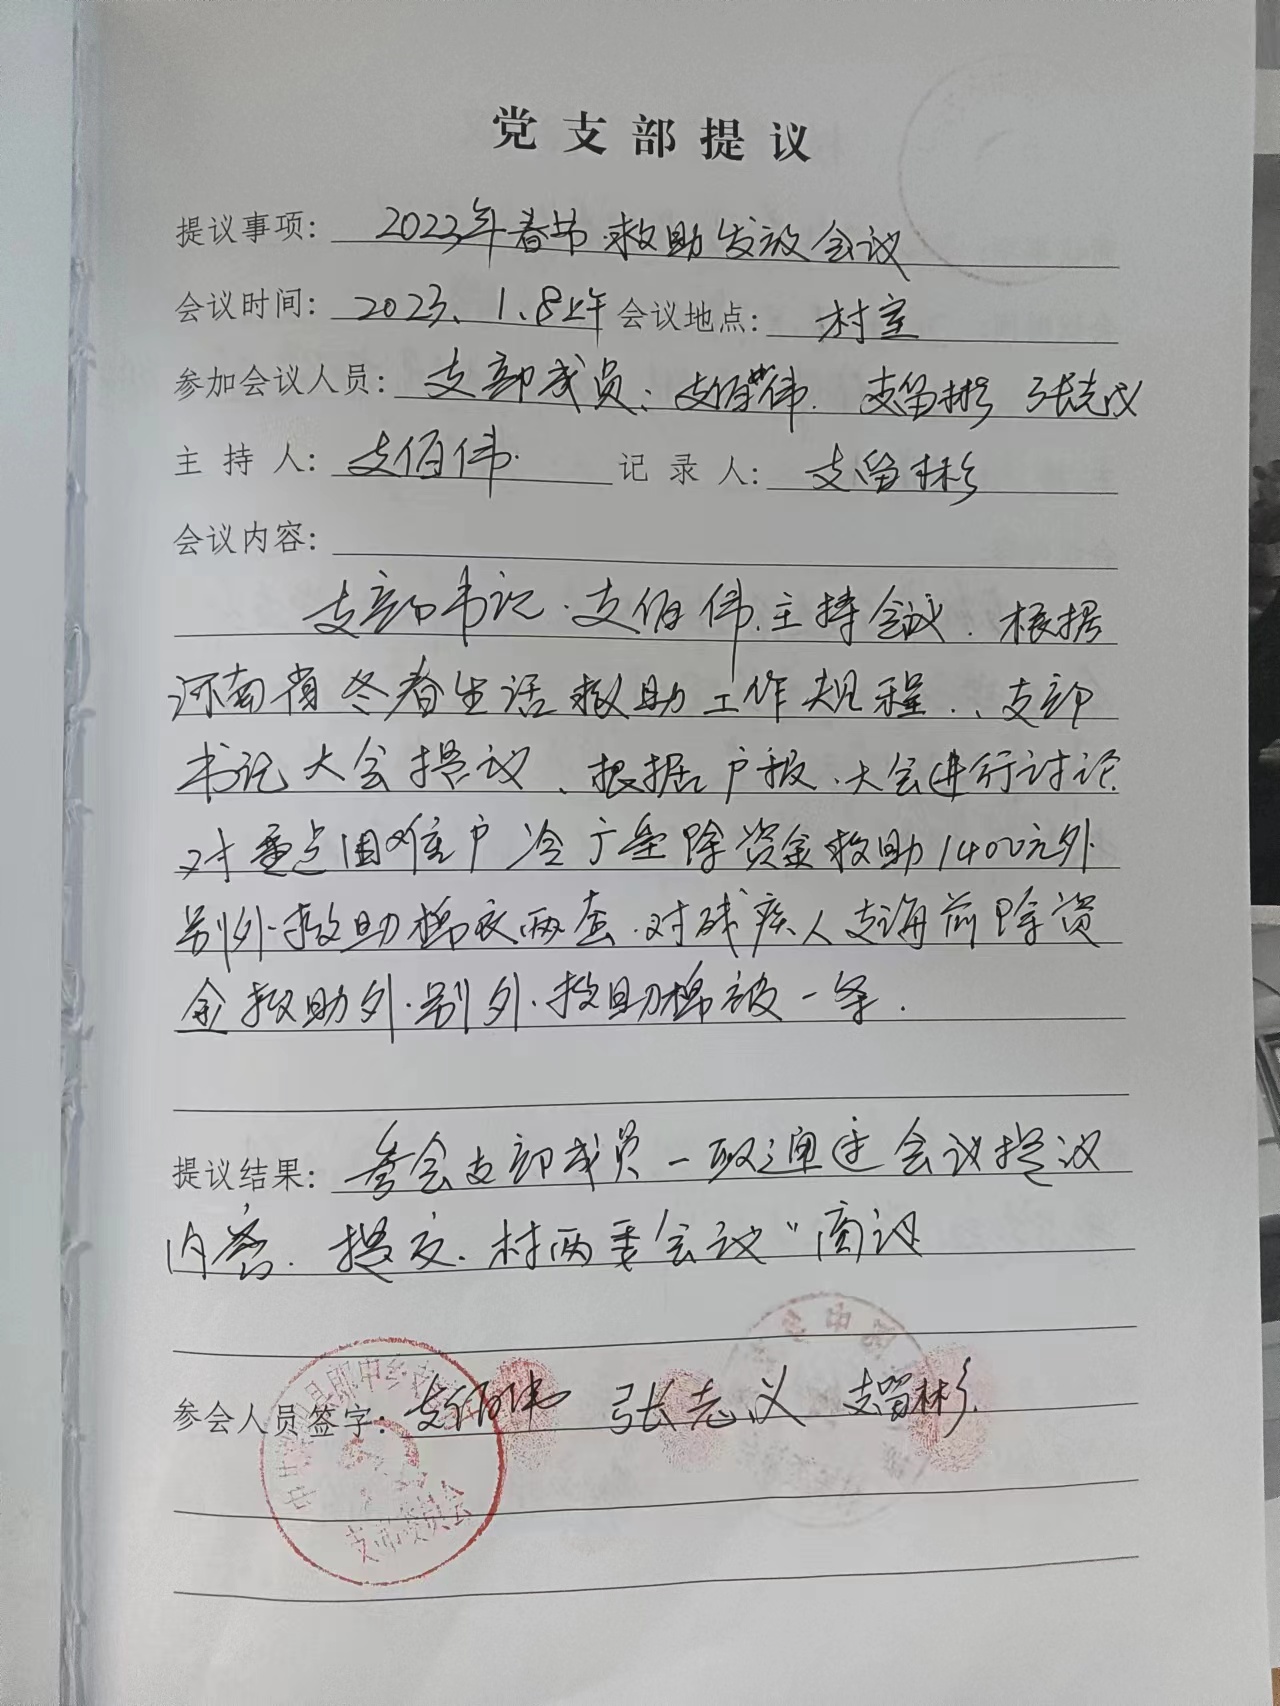 党支部提议
提议事项：2023年春节.救助发放会议
会议时间：2023、1.8上午 会议地点：村室
参加会议人员：支部成员：支佰伟. 支留彬 张志义
主持人：支佰伟. 记录人：支留彬
会议内容：
支部书记.支佰伟.主持会议.根据
河南省冬春生活救助工作规程.、支部
书记大会提议、根据户报、大会进行讨论
对重点困难户冷广奎除资金救助1400元外
别外.救助棉衣两套.对残疾人支海前除资
金救助外.别外.救助棉被一条.
提议结果：参会支部成员一致通过会议提议
内容.提交.村两委会议"商议
参会人员签字：支佰伟 张志义 支留彬.
支部委员会